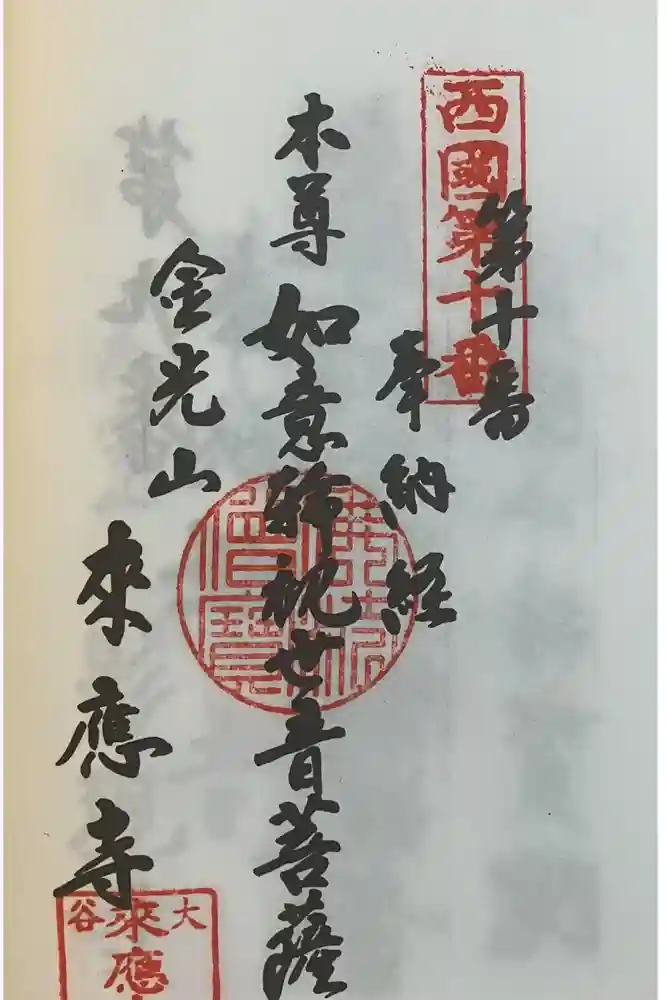 西國第十番
第十番
奉納経
本尊 如意輪観世音菩薩
金光山
來應寺
大谷
來應